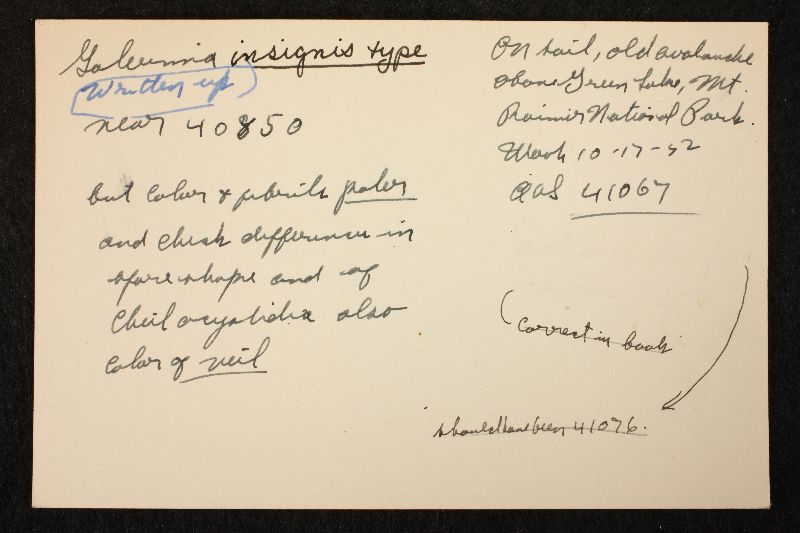 Galerina insignis type
Written up
near 40850
but color & fibrils paler
and check difference in
spore shape and of
Cheilocystidia also
color of veil
On soil, old avalanche
above Green Lake, Mt.
Rainier National Park.
Wash 10-17-52
AHS 41067
(correct in book
should have been 41076.